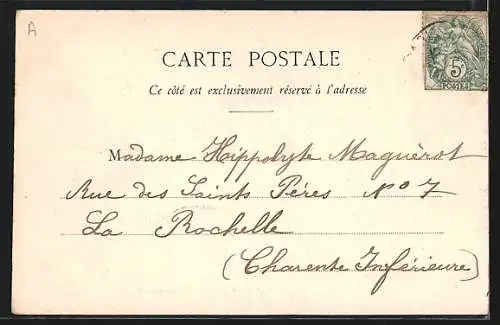 A
CARTE POSTALE
Ce côté est exclusivement réservé à l'adresse
5c
POSTES
Madame Hippolyte Maguérot
Rue des Saints Pères No 7
La Rochelle
(Charente Inférieure)